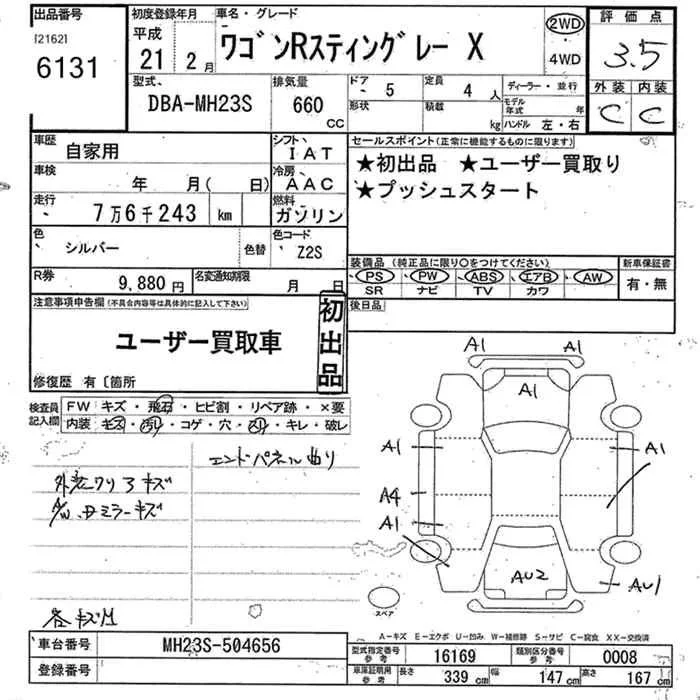 出品番号
[2162]
6131
初度登録年月
平成
21 2月
車名・グレード
ワゴンRスティングレー X
2WD
4WD
評価点
3.5
外装 内装
C C
型式、
DBA-MH23S
排気量
660
CC
ドア 5
定員 4人
形状
積載 kg
ディーラー・並行
モデル年式 年
ハンドル 左・右
車歴
自家用
シフト
IAT
車検
年 月( 日)
冷房
AAC
走行
7万6千243 km
燃料
ガソリン
色
シルバー
色替
色コード
Z2S
R券 9,880円
名変通知期限
月 日
セールスポイント(正常に機能するものに限ります)
★初出品 ★ユーザー買取り
★プッシュスタート
装備品 (純正品に限り〇をつけてください)
PS PW ABS エアB AW
SR ナビ TV カワ
新車保証書
有・無
注意事項申告欄 (不具合内容等は具体的に記入して下さい)
ユーザー買取車
初出品
修復歴 有〔箇所
後日品
検査員記入欄
FW キズ・飛石・ヒビ割・リペア跡・×要
内装 キズ・汚れ・コゲ・穴・スリ・キレ・破レ
エンドパネル曲り
キズ
ミラーキズ
A1 A1
A1
A1 A1
A4
A1
AU2
AU1
スペア
A-キズ E-エクボ U-凹み W-補修跡 S-サビ C-腐食 XX-交換済
車台番号
MH23S-504656
登録番号
型式指定番号
参考
16169
類別区分番号
参考
0008
車庫証明用
参考
長さ 339 cm
幅 147 cm
高さ 167 cm